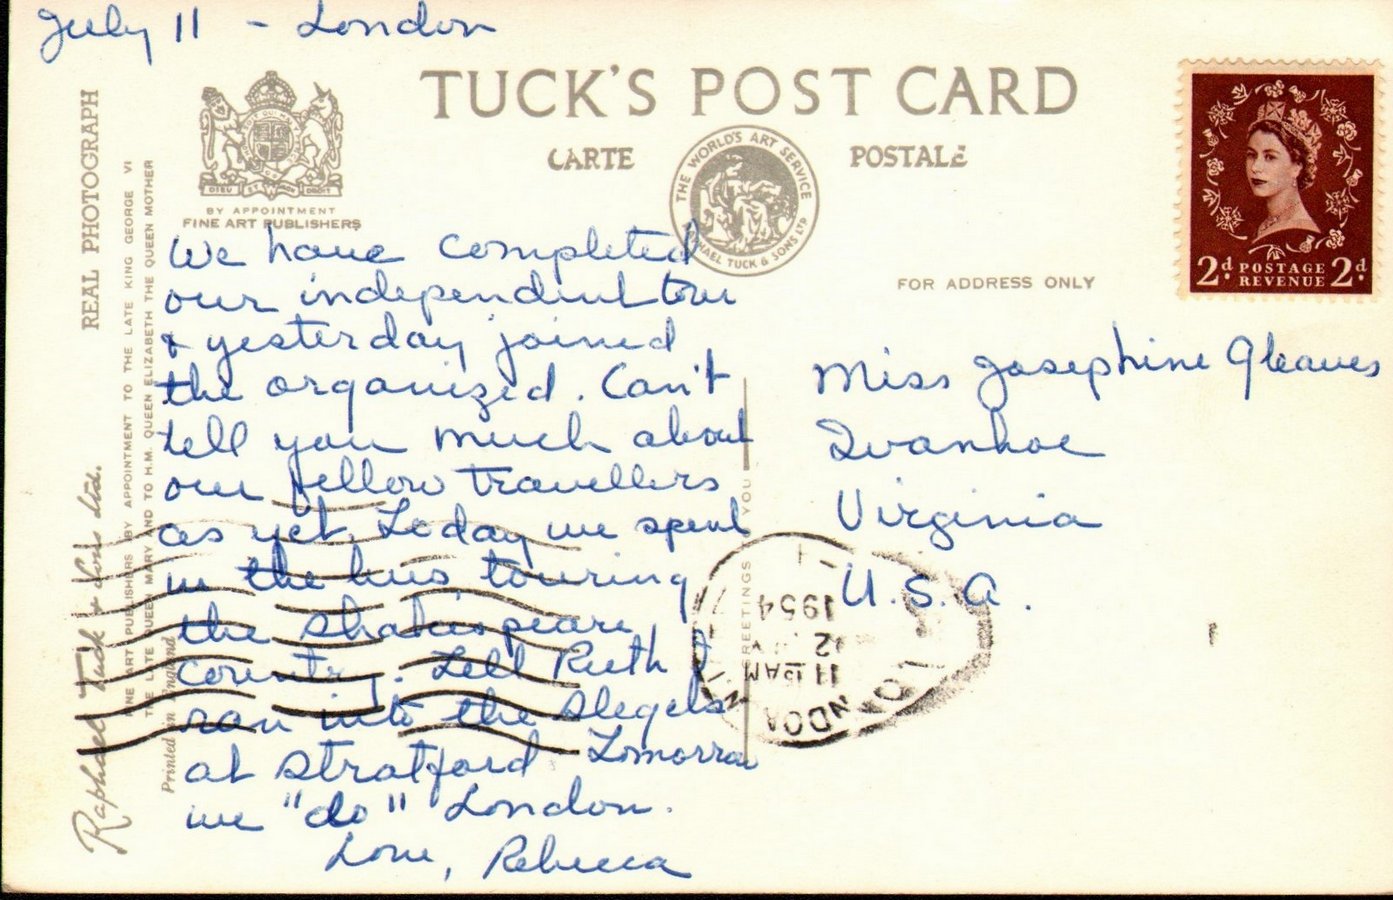 July 11 - London
TUCK'S POST CARD
CARTE POSTALE
THE WORLD'S ART SERVICE
RAPHAEL TUCK & SONS LTD
DIEU ET MON DROIT
BY APPOINTMENT
FINE ART PUBLISHERS
FOR ADDRESS ONLY
2d POSTAGE 2d
REVENUE
REAL PHOTOGRAPH
Raphael Tuck & Sons Ltd.
FINE ART PUBLISHERS BY APPOINTMENT TO THE LATE KING GEORGE VI
THE LATE QUEEN MARY AND TO H.M. QUEEN ELIZABETH THE QUEEN MOTHER
Printed in England
We have completed
our independent tour
& yesterday joined
the organized. Can't
tell you much about
our fellow travellers
as yet. Today we spent
in the bus, touring
the Shakespeare
Country. Tell Ruth I
ran into the Slegels
at Stratford Tomorrow
we "do" London.
Love, Rebecca
Miss Josephine Gleaves
Ivanhoe
Virginia
U.S.A.
GREETINGS YOU
11 15 AM
12
1954
LONDON